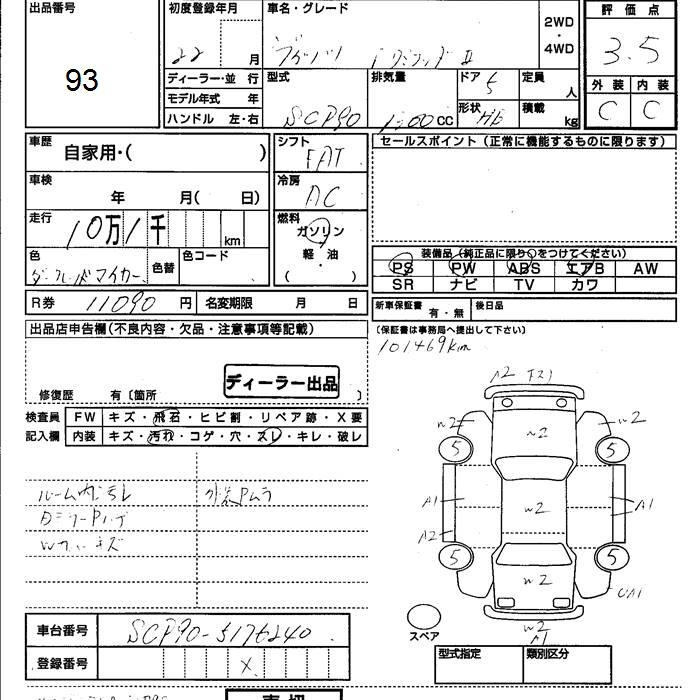 出品番号
93
初度登録年月
22 月
ディーラー・並 行
モデル年式 年
ハンドル 左・右
車名・グレード
2WD
・
4WD
型式
SCP90
排気量
1300 CC
ドア
5
形状
HB
定員
人
積載
kg
評 価 点
3.5
外 装 内 装
C C
車歴
自家用・( )
車検
年 月( 日)
走行
10万1千
km
色
色替
色コード
シフト
FAT
冷房
AC
燃料
ガソリン
軽・油
・
( )
セールスポイント（正常に機能するものに限ります）
装備品（純正品に限り○をつけてください）
PS PW ABS エアB AW
SR ナビ TV カワ
R券 11090 円 名変期限 月 日
新車保証書
有・無
後日品
（保証書は事務局へ提出して下さい）
101469km
出品店申告欄（不良内容・欠品・注意事項等記載）
ディーラー出品
修復歴 有〔箇所 〕
検査員
記入欄
FW キズ・飛石・ヒビ割・リペア跡・X要
内装 キズ・汚れ・コゲ・穴・スレ・キレ・破レ
ルーム内汚レ
外装Pムラ
A2
W2
W2
W2
5
5
A1
W2
A1
A2
5
5
W2
UA1
W2
A1
スペア
車台番号 SCP90-5176240
登録番号 X
型式指定 類別区分